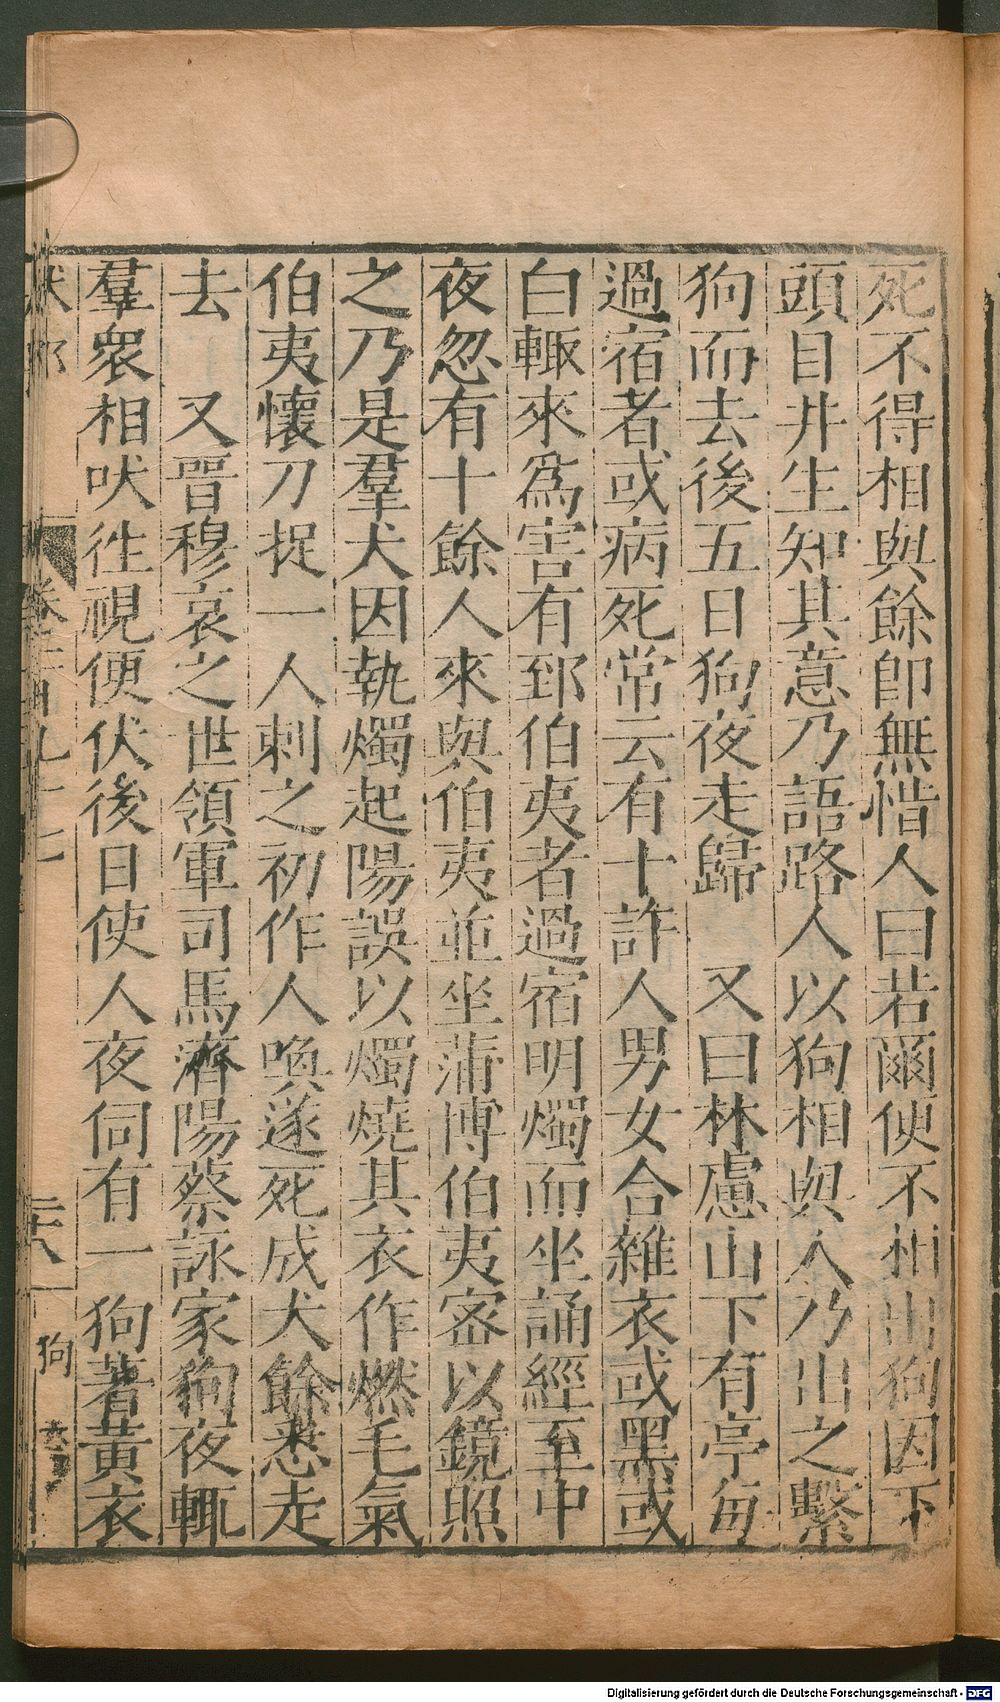 死不得相與餘卽無惜人曰若爾便不相出狗因下
頭目井生知其意乃語路人以狗相與人乃出之繫
狗而去後五日狗夜走歸　又曰林慮山下有亭每
過宿者或病死常云有十許人男女合雜衣或黑或
白輙來爲害有郅伯夷者過宿明燭而坐誦經至中
夜忽有十餘人來與伯夷並坐蒲博伯夷密以鏡照
之乃是羣犬因執燭起陽誤以燭燒其衣作燃毛氣
伯夷懷刀捉一人刺之初作人喚遂死成犬餘悉走
去　又晉穆哀之世領軍司馬濟陽蔡詠家狗夜輒
羣衆相吠徃視便伏後日使人夜伺有一狗著黃衣
狗
Digitalisierung gefördert durch die Deutsche Forschungsgemeinschaft - DFG